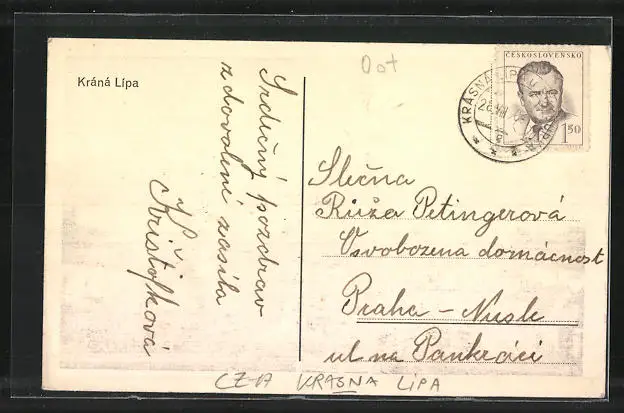 Kráná Lípa
Dot
Srdečný pozdrav
z dovolené zasílá
Krištofková
ČESKOSLOVENSKO
1.50
KRÁSNÁ LÍPA
Slečna
Růža Petingerová
Osvobozena domácnost
Praha - Nusle
ul na Pankráci
CZA KRASNA LIPA